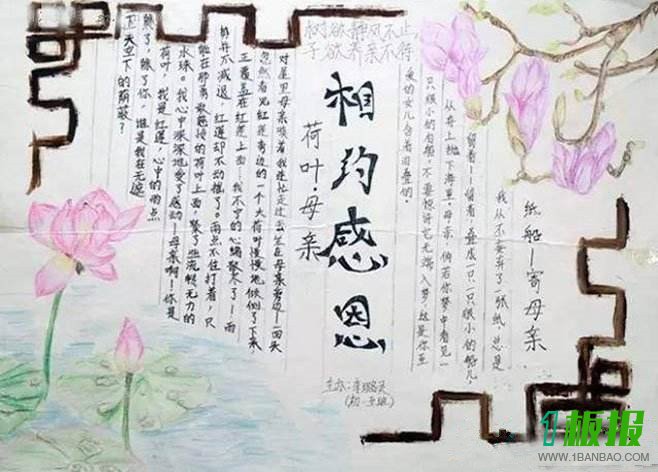 树欲静风不止
子欲养亲不待
纸船—寄母亲
我从不妄弃了一张纸,总是
留着—留着,叠成一只一只很小的船儿,
从舟上抛下海里。母亲,倘若你梦中看见一
只很小的白船,不要惊讶它无端入梦。这是你至
爱的女儿含着泪叠的。
相约感恩
主办:
(初一五班)
荷叶·母亲
对屋里母亲唤着我连忙走过去坐在母亲旁边—一回头
忽然看见红莲旁边的一个大荷叶慢慢地倾侧了下来,
正覆盖在红莲上面…我不宁的心绪散尽了!—雨
势并不减退,红莲却不动摇了。雨点不住打着,只
能在那勇敢慈怜的荷叶上面,聚了些流转无力的
水珠。我心中深深地受了感动—母亲啊!你是
荷叶,我是红莲,心中的雨点
来了,除了你,谁是我在无遮
拦天空下的荫蔽?
1板报
WWW.1BANBAO.COM